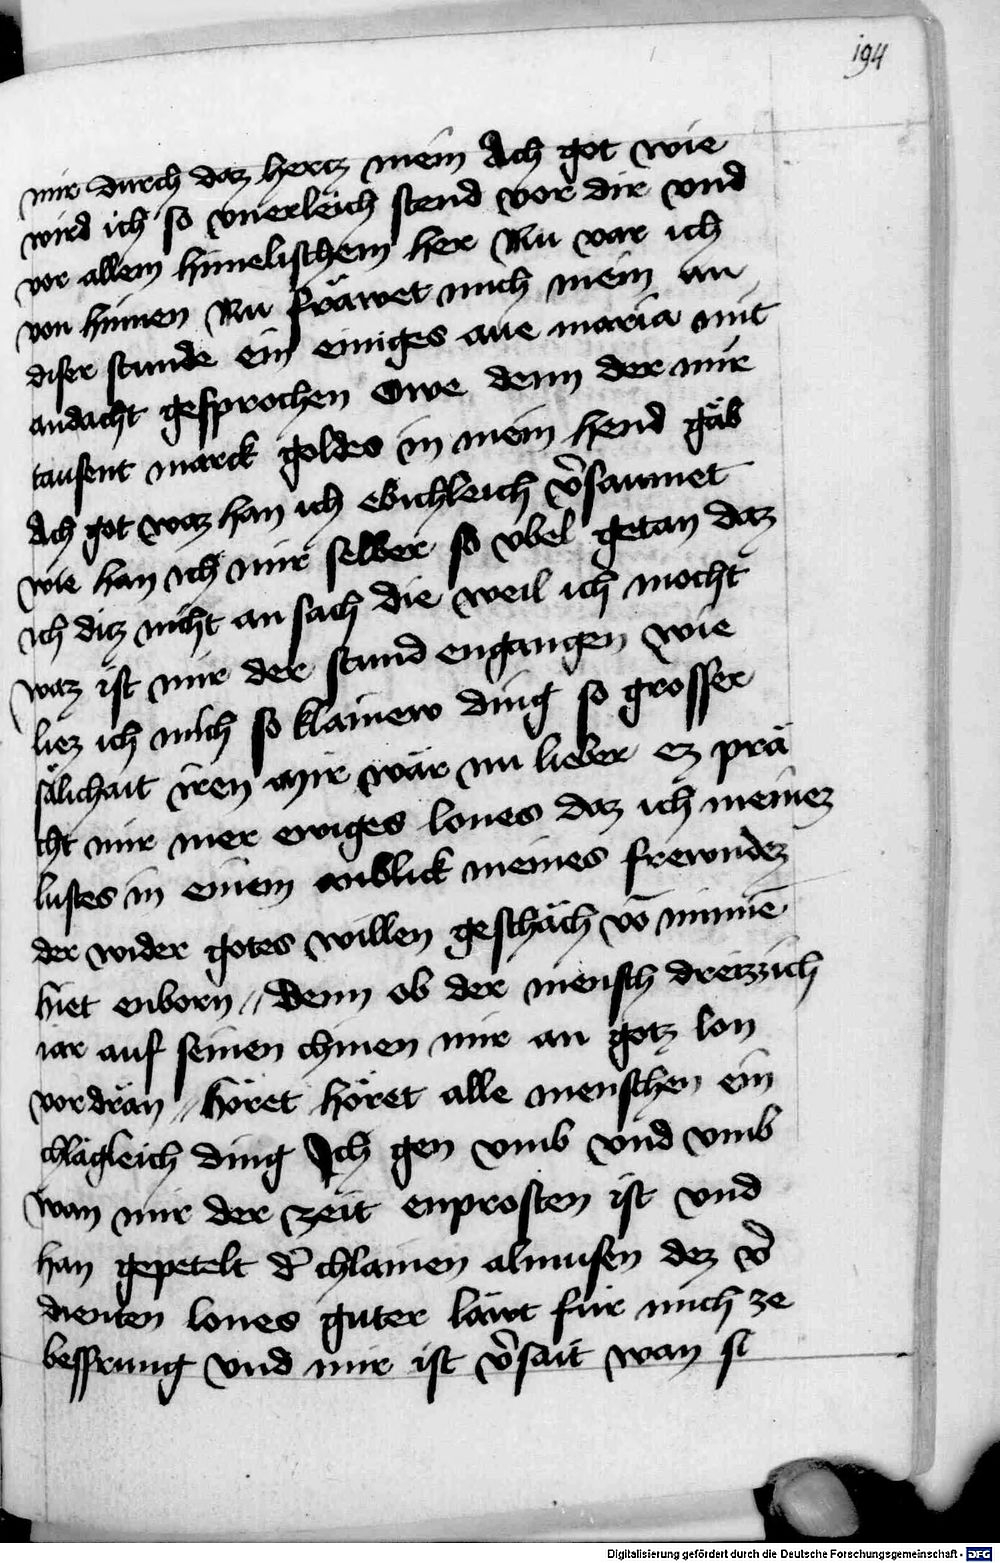 194
mir durch daz hertz mein Ach got wie
wird ich so vnerleich stend vor dir vnd
vor allem himelischem her Nu var ich
von hinnen Nu fräwet mich mein an
diser stunde ein einiges aue maria mit
andacht gesprochen Owe denn der mir
tausent marck goldes in mein hend gäb
Ach got waz han ich ebichleich v̾saumet
wie han ich mir selber so vbel getan daz
ich ditz nicht an sach die weil ich mocht
waz ist mir der stund engangen wie
liez ich mich so klainew ding so grosser
sälichait irren mir wär nu lieber ez prä
cht mir mer ewiges lones daz ich meinez
lustes in einem anblick meines frewndez
der wider gotes willen geschäch vō minnē
hiet enborn // denn ob der mensch dreizzich
iar auf seinen chnien mir an gotz lon
vordrän // höret höret alle menschen ein
chlägleich ding Ich gen vmb vnd vmb
wan mir der zeit enprosten ist vnd
han gepetelt d̾ chlainen almusen dez v̾
dienten lones guter läwt für mich ze
pessrung vnd mir ist v̾sait wan si
Digitalisierung gefördert durch die Deutsche Forschungsgemeinschaft - DFG